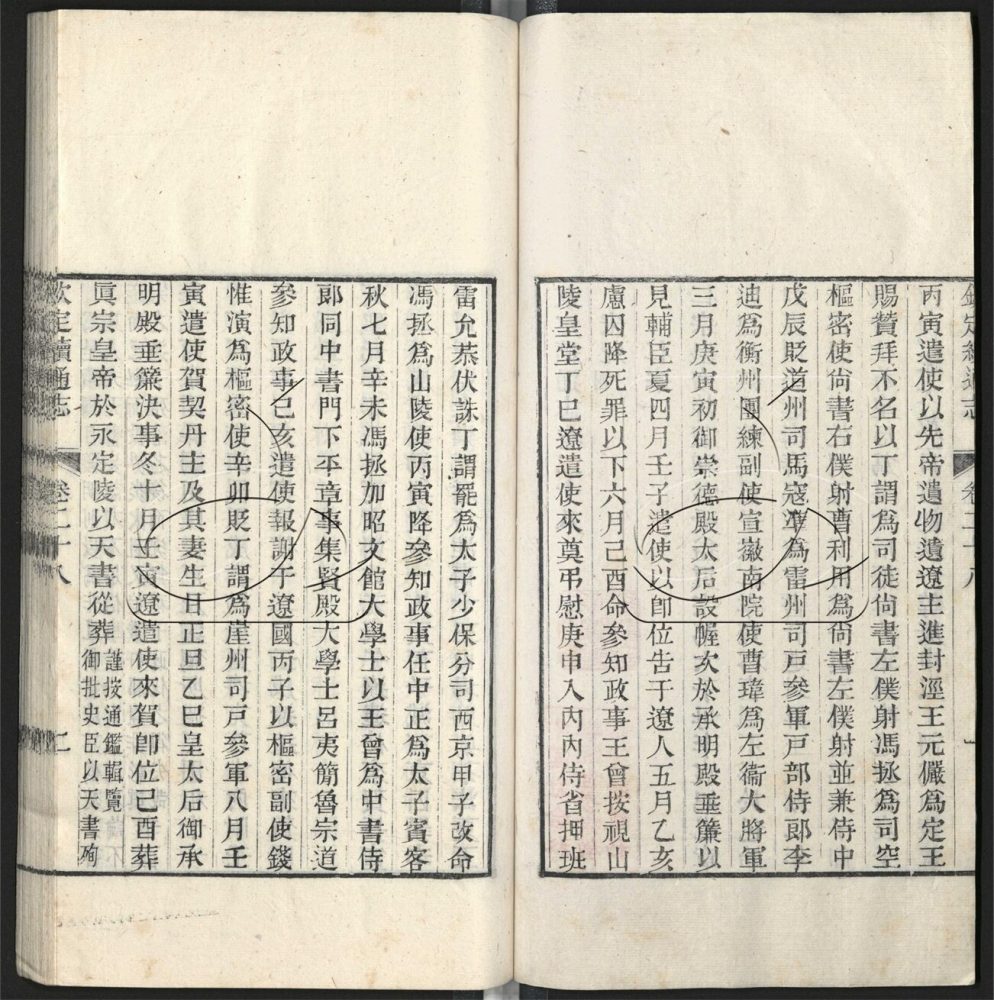 欽定續通志 卷二十八 一
丙寅遣使以先帝遺物遺遼主進封涇王元儼為定王
賜贊拜不名以丁謂為司徒尙書左僕射馮拯為司空
樞密使尙書右僕射曹利用為尙書左僕射並兼侍中
戊辰貶道州司馬寇準為雷州司戸參軍戸部侍郎李
迪為衡州團練副使宣徽南院使曹瑋為左衞大將軍
三月庚寅初御崇德殿太后設幄次於承明殿垂簾以
見輔臣夏四月壬子遣使以卽位告于遼人五月乙亥
慮囚降死罪以下六月己酉命參知政事王曾按視山
陵皇堂丁巳遼遣使來奠弔慰庚申入內內侍省押班
雷允恭伏誅丁謂罷為太子少保分司西京甲子改命
馮拯為山陵使丙寅降參知政事任中正為太子賓客
秋七月辛未馮拯加昭文館大學士以王曾為中書侍
郎同中書門下平章事集賢殿大學士呂夷簡魯宗道
參知政事己亥遣使報謝于遼國丙子以樞密副使錢
惟演為樞密使辛卯貶丁謂為崖州司戸參軍八月壬
寅遣使賀契丹主及其妻生日正旦乙巳皇太后御承
明殿垂簾決事冬十月壬寅遼遣使來賀卽位己酉葬
眞宗皇帝於永定陵以天書從葬 謹按通鑑輯覽
御批史臣以天書殉
欽定續通志 卷二十八 二